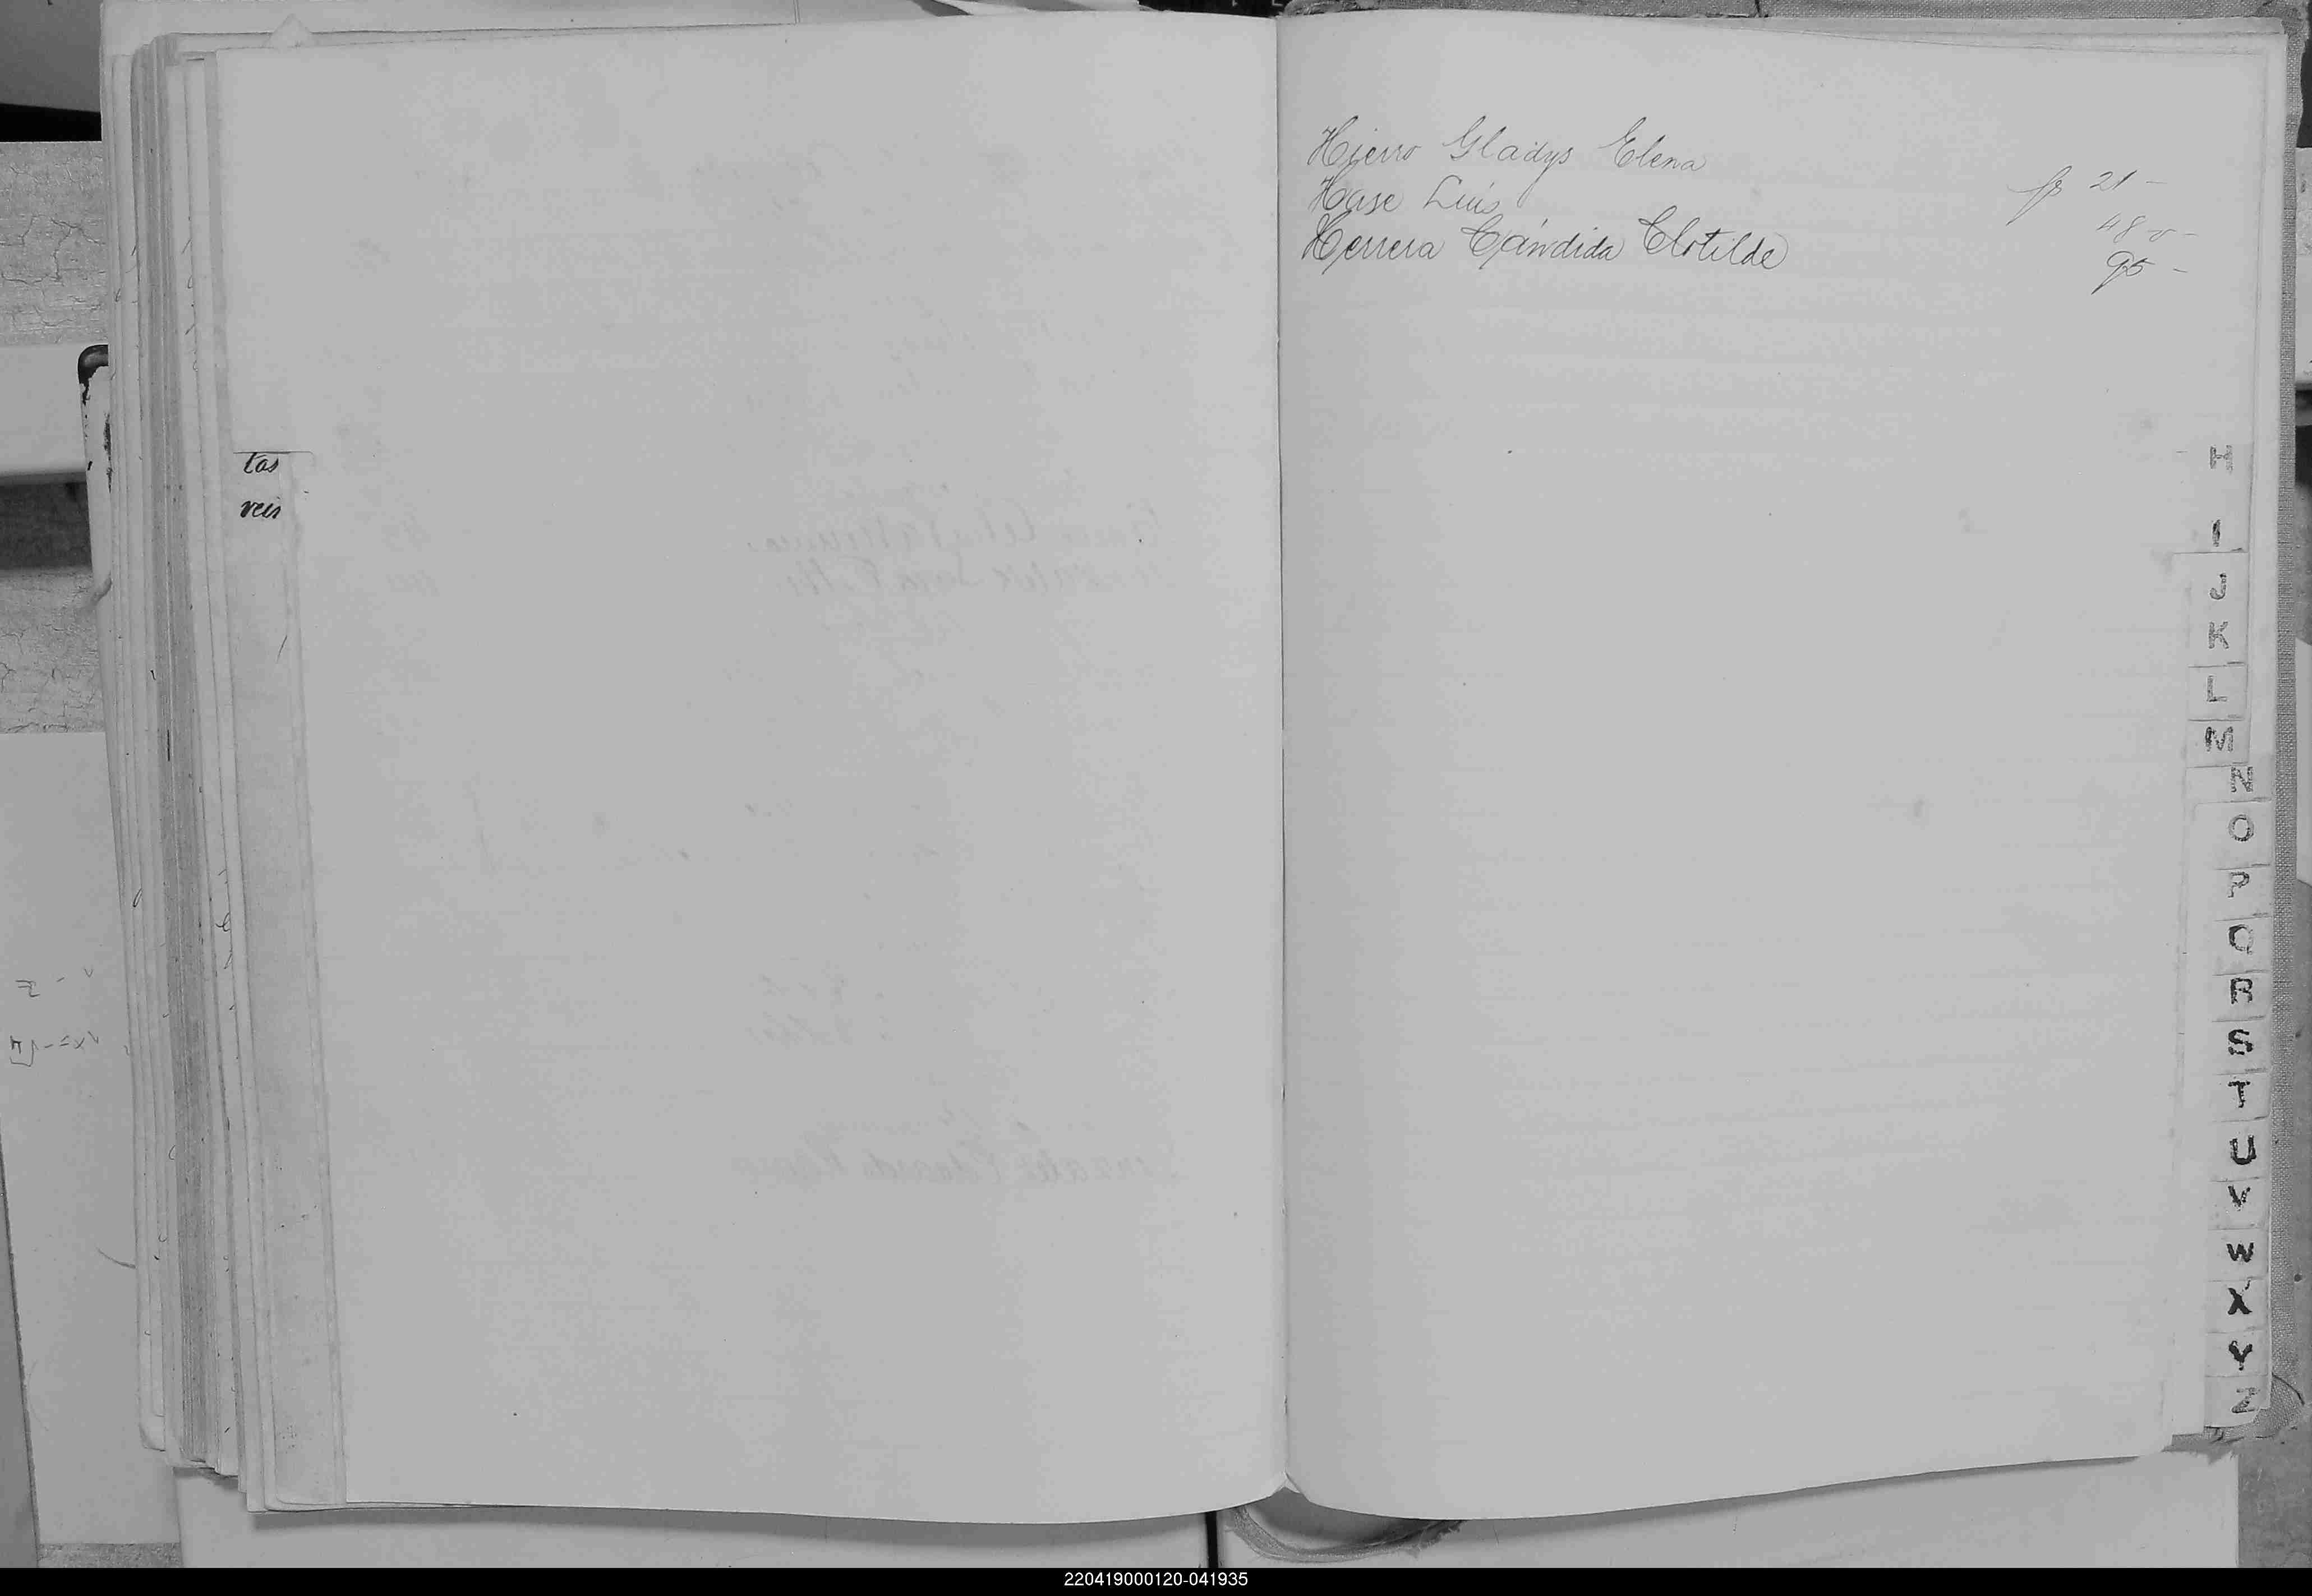 tas
veis
Hierro Gladys Elena
fs 21 -
Hase Luis
48 v -
Herrera Cándida Clotilde
95 -
H
I
J
K
L
M
N
O
P
Q
R
S
T
U
V
W
X
Y
Z
220419000120-041935